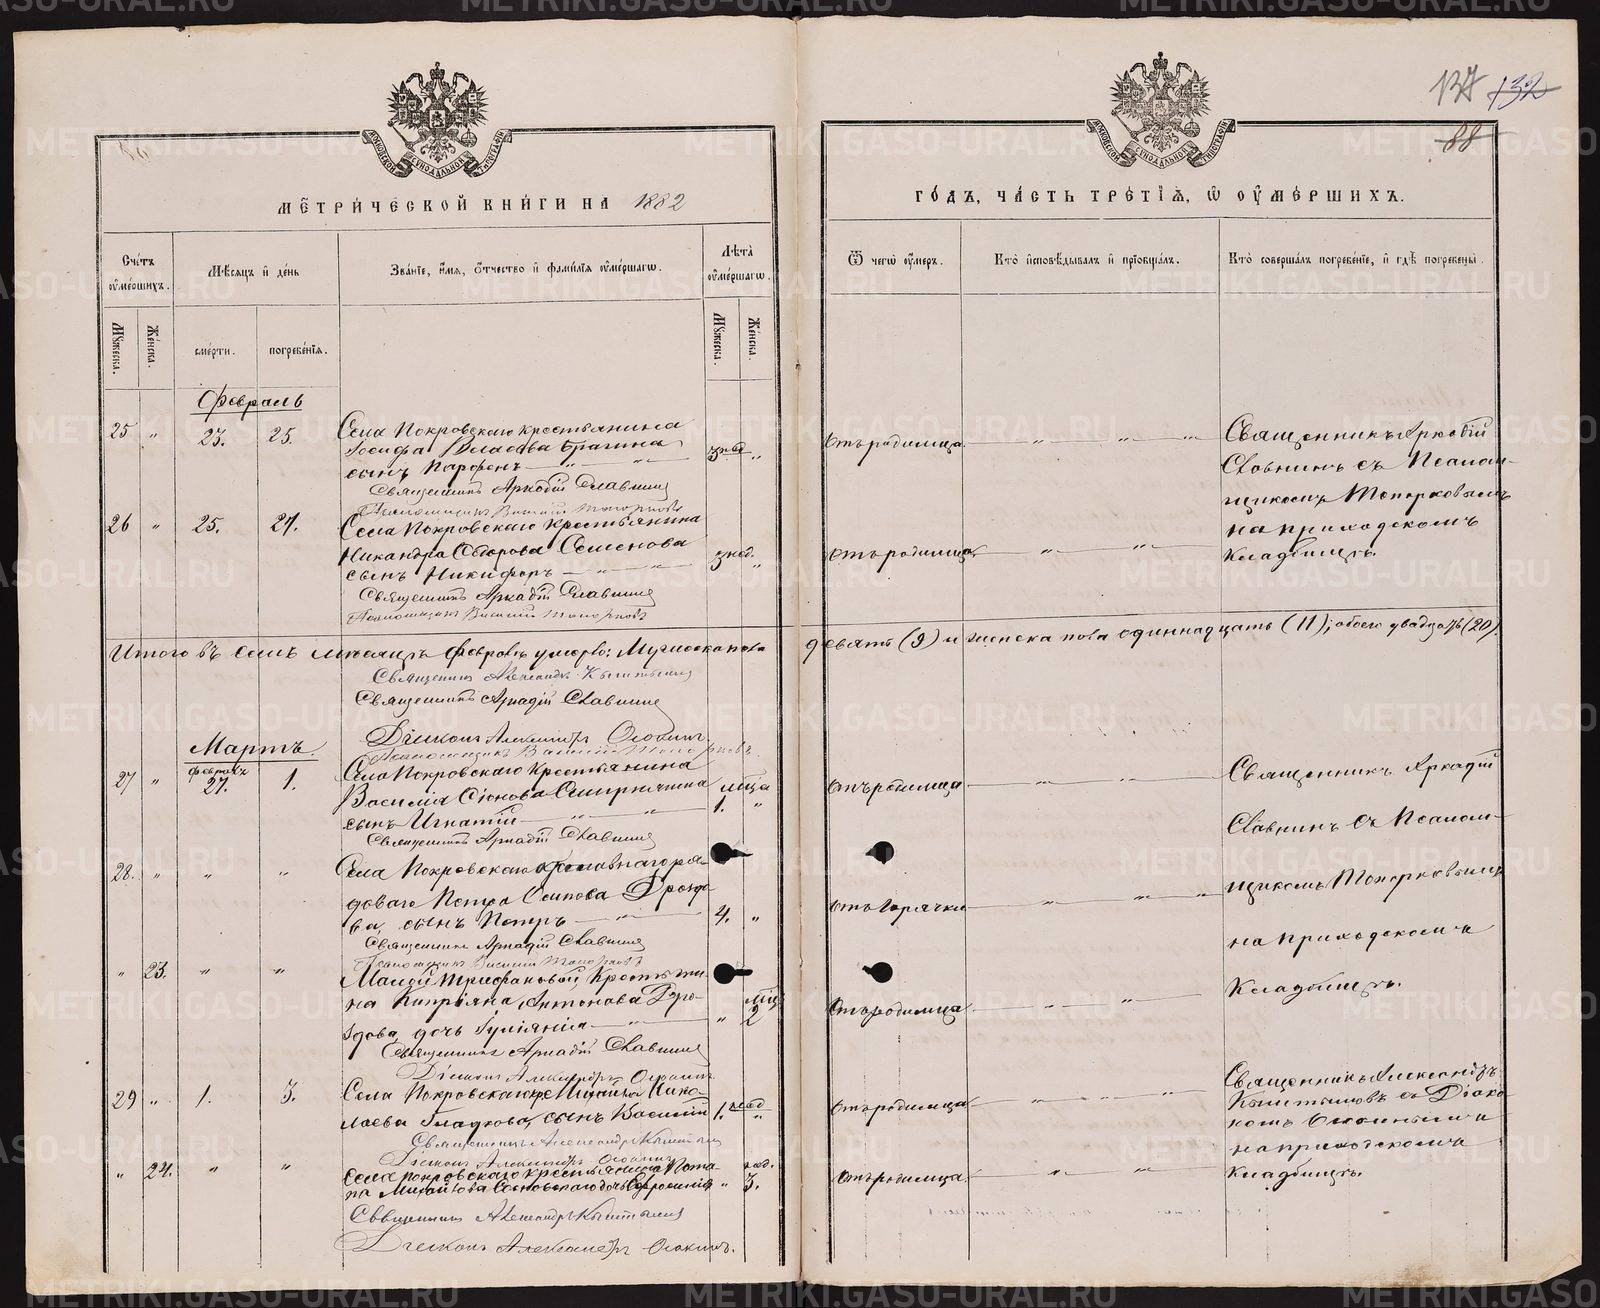 137 132
88
МЕТРИЧЕСКОЙ КНИГИ НА 1882
ГОДЪ, ЧАСТЬ ТРЕТІЯ, Ѿ ОУМЕРШИХЪ.
Счетъ оумершихъ.
Мѣсяцъ и день
Званіе, имя, отчество и фамилія оумершагω.
Лѣта оумершагω.
Ѿ чегω оумеръ.
Кто исповѣдывалъ и пріобщалъ.
Кто совершалъ погребеніе, и гдѣ погребены.
Мужеска.
Женска.
смерти.
погребенія.
Мужеска.
Женска.
Февраль
25 " 23. 25. Села Покровскаго крестьянина
Іосифа Власова Брагина
сынъ Парфенъ — " — " —
3 нед. "
Отъ родимца — " — " — " —
Священникъ Аркадій
Славнинъ съ Псалом-
щикомъ Топорковымъ
на приходскомъ
кладбищѣ.
Священникъ Аркадій Славнинъ
Псаломщикъ Василій Топорковъ
26 " 25. 27. Села Покровскаго крестьянина
Никандра Ѳедорова Семенова
сынъ Никифоръ — " — " —
3 нед. "
Отъ родимца — " — " —
Священникъ Аркадій Славнинъ
Псаломщикъ Василій Топорковъ
Итого въ семъ мѣсяцѣ Февралѣ умерло: Мужеска пола девять (9) и женска пола одиннадцать (11); обоего двадцать (20).
Священникъ Александръ
Священникъ Аркадій Славнинъ
Діаконъ Александръ Осокинъ
Псаломщикъ Василій Топорковъ.
Мартъ.
27 " Февраля 27. 1. Села Покровскаго крестьянина
Василія
сынъ Игнатій — " — " —
мѣца 1. "
Отъ родимца — " — " —
Священникъ Аркадій
Славнинъ съ Псалом-
щикомъ Топорковымъ
на приходскомъ
кладбищѣ.
Священникъ Аркадій Славнинъ
28. " " " Села Покровскаго
доваго Петра Осипова Дрозд-
ва, сынъ Петръ — " —
4. "
Отъ горячки — " — " — " —
Священникъ Аркадій Славнинъ
Псаломщикъ Василій Топорковъ
" 23. " " Трифановой, Крестьяни-
на Кипріяна Антонова
дочь Іуліянія — " —
" мѣц. 2
Отъ родимца — " — " —
Священникъ Аркадій Славнинъ
Діаконъ Александръ Осокинъ
29 " 1. 3. Села Покровскаго кр. Михаила Нико-
лаева Гладкова, сынъ Василій
1. нед. "
Отъ родимца — " — " — " —
Священникъ Александръ
съ Діако-
номъ Осокинымъ
на приходскомъ
кладбищѣ.
Священникъ Александръ
Діаконъ Александръ Осокинъ
" 24. " " Села Покровскаго крестьянина Пота-
па Михайлова Сосновскаго дочь
" нед. 3.
Отъ родимца — " — " —
Священникъ Александръ
Діаконъ Александръ Осокинъ.
METRIKI.GASO-URAL.RU